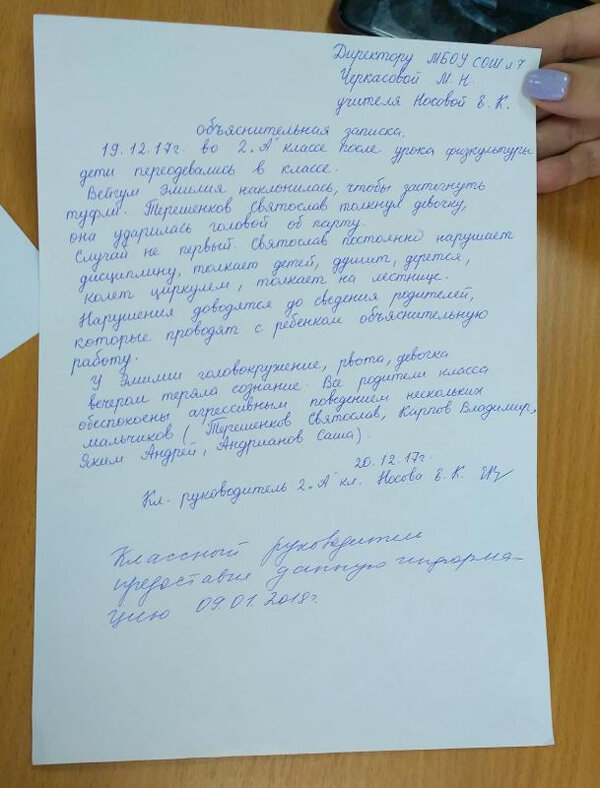 Директору МБОУ СОШ № 7
Черкасовой М. Н.
учителя Носовой Е. К.
объяснительная записка.
19.12.17г. во 2 "А" классе после урока физкультуры
дети переодевались в классе.
Вейгум Эмилия наклонилась, чтобы застегнуть
туфли. Терешенков Святослав толкнул девочку,
она ударилась головой об парту.
Случай не первый. Святослав постоянно нарушает
дисциплину, толкает детей, душит, дерется,
колет циркулем, толкает на лестнице.
Нарушения доводятся до сведения родителей,
которые проводят с ребенком объяснительную
работу.
У Эмилии головокружение, рвота, девочка
вечером теряла сознание. Все родители класса
обеспокоены агрессивным поведением нескольких
мальчиков (Терешенков Святослав, Карпов Владимир,
Яким Андрей, Андрианов Саша).
20.12.17г.
Кл. руководитель 2 "А" кл. Носова Е. К.
Классный руководитель
предоставил данную информа-
цию 09.01.2018г.